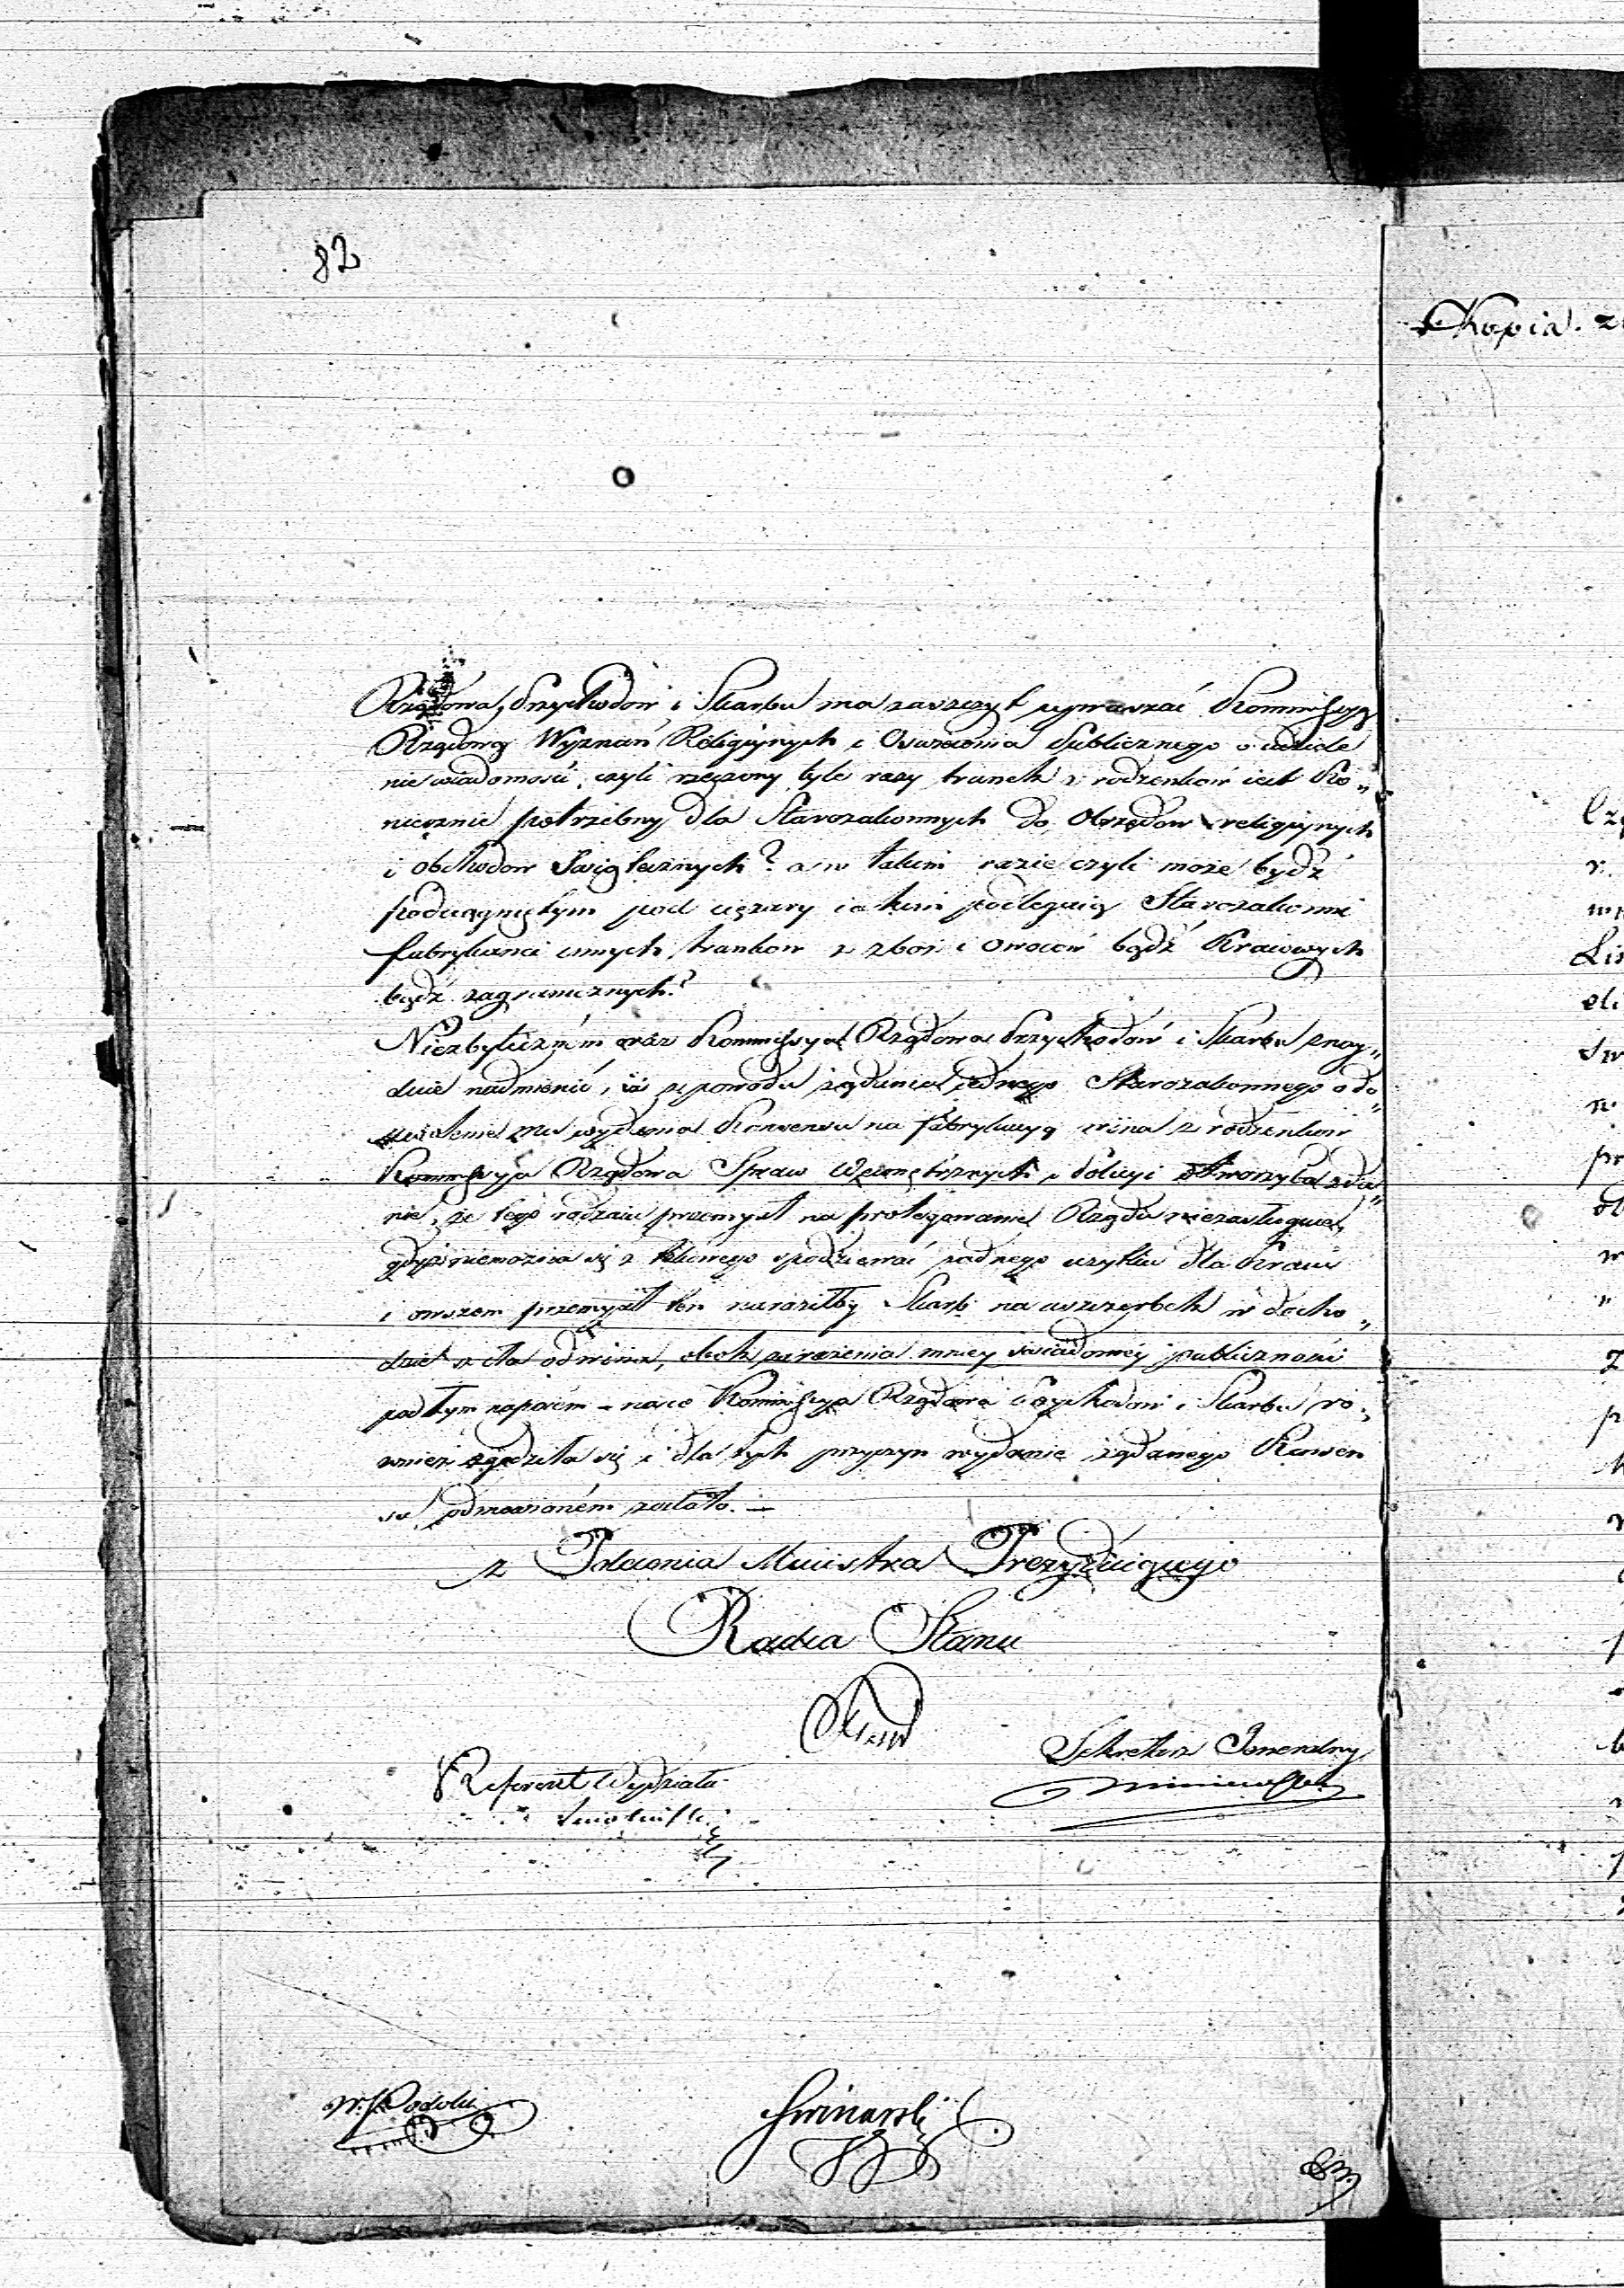 82
Kopia.
Rządowa Przychodów i Skarbu ma zaszczyt upraszać Kommissyą
Rządową Wyznań Religiynych i Oświecenia Publicznego o udziele
nie wiadomości, czyli rzeczony tyle razy trunek z rodzenków iest Ko„
niecznie potrzebny dla Starozakonnych do Obrzędów religiynych
i obchodów Swiątecznych? a w takim razie czyli może bydź
podciągniętym pod ciężary iakim podlegaią Starozakonni
fabrykanci innych trunków z zboż i owoców bądź Kraiowych
bądź zagranicznych?
Niezbyteczném oraz Kommissya Rządowa Przychodów i Skarbu znay„
duie nadmienić, iż z powodu żądania iednego Starozakonnego o do„
zwolenie mu wydania Konsensu na fabrykacyą wina z rodzenków
Kommissya Rządowa Spraw Wewnętrznych i Policyi otworzyła zda„
nie, że tego rodzaiu przemysł na protegowanie Rządu niezasługuie,
gdyż niemożna się z którego spodziewać żadnego użytku dla Kraiu
i owszem przemysł ten naraziłby Skarb na uszczerbek w docho„
dzie z cła od wina, obok narażenia mniey świadoméy publiczności
pod tym napoiem - na co Kommissya Rządowa Przychodów i Skarbu ró„
wnież zgodziła się i dla tych przyczyn wydanie żądanego Konsen
su odmówioném zostało. —
z Polecenia Ministra Prezyduiącego
Radca Stanu
Sekretarz Jeneralny
Referent Wydziału
W. Podolski
83